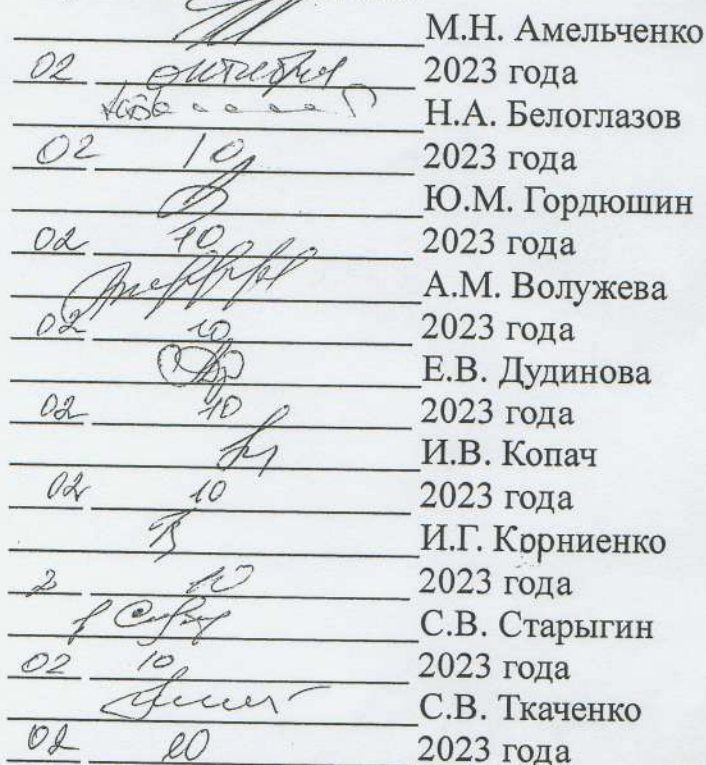 М.Н. Амельченко
02 октября 2023 года
Н.А. Белоглазов
02 10 2023 года
Ю.М. Гордюшин
02 10 2023 года
А.М. Волужева
02 10 2023 года
Е.В. Дудинова
02 10 2023 года
И.В. Копач
02 10 2023 года
И.Г. Корниенко
2 10 2023 года
С.В. Старыгин
02 10 2023 года
С.В. Ткаченко
02 10 2023 года